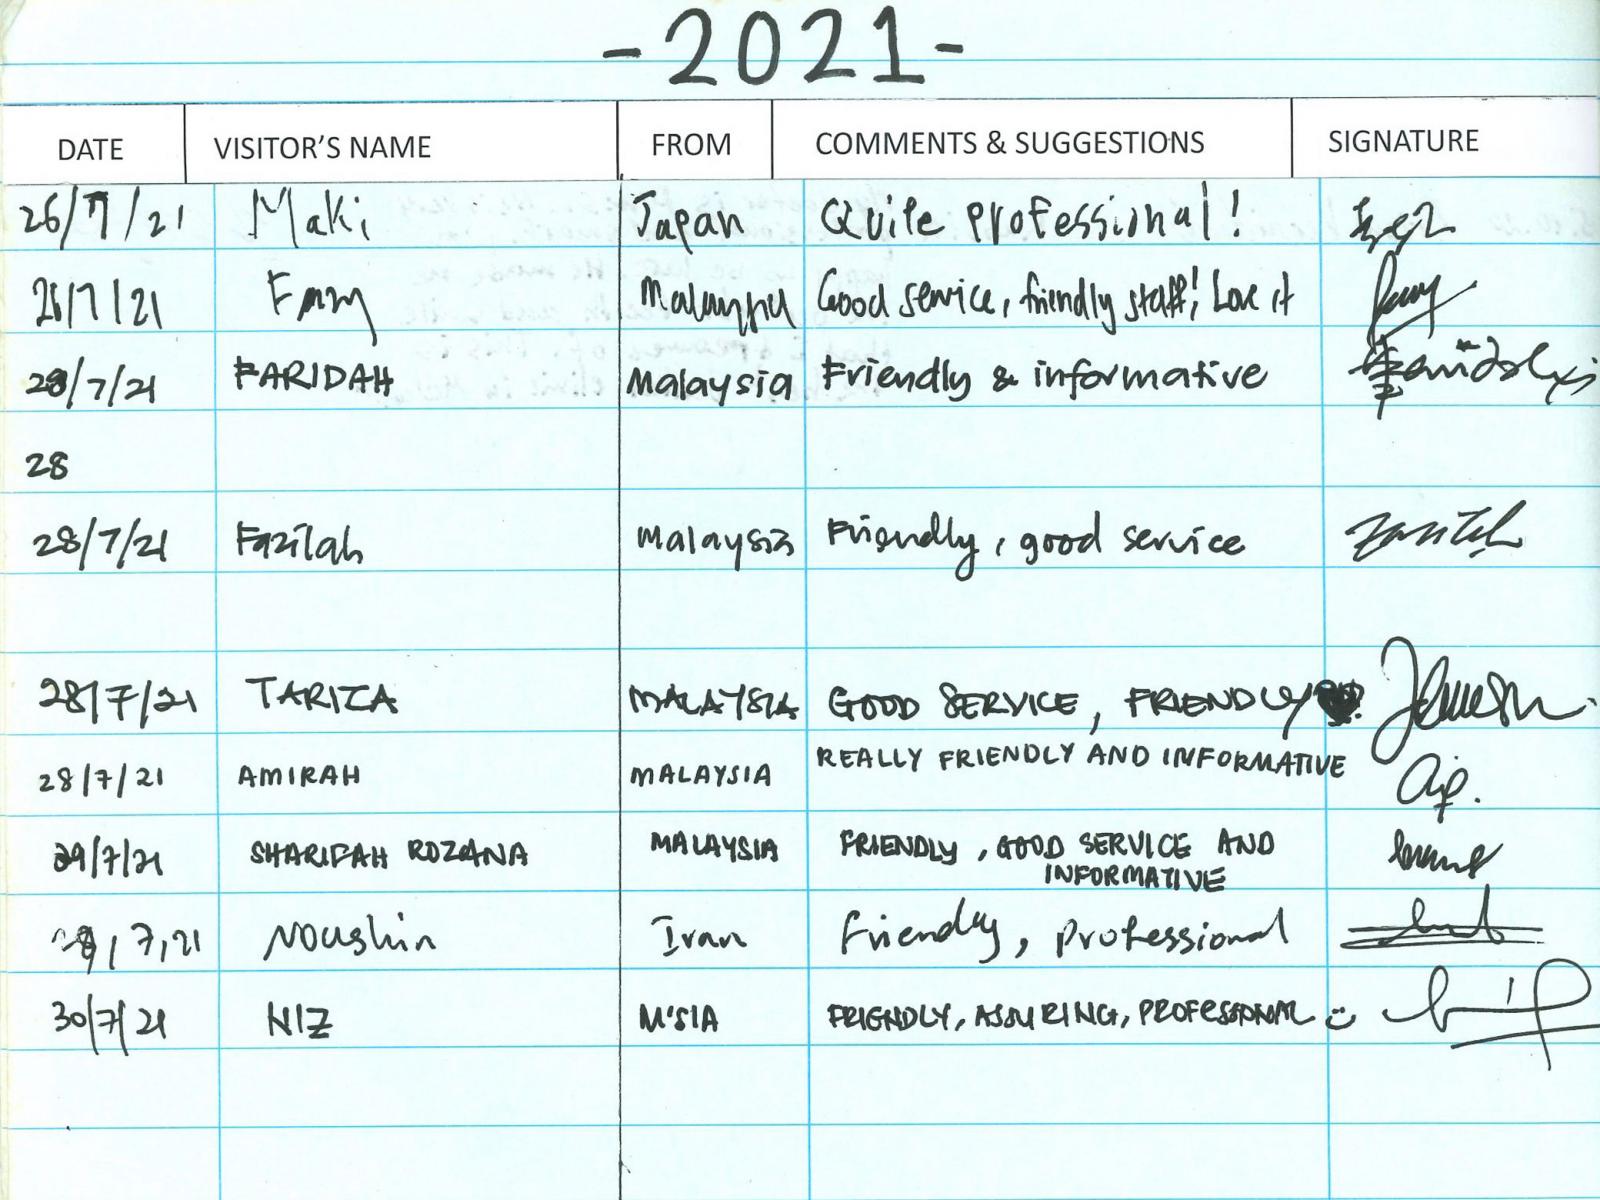 -2021-
DATE VISITOR'S NAME FROM COMMENTS & SUGGESTIONS SIGNATURE
26/7/21 Maki Japan Quite professional!
28/7/21 Malaysia Good service, friendly staff! Love it
28/7/21 FARIDAH Malaysia Friendly & informative
28
28/7/21 Fazilah Malaysia Friendly, good service
28/7/21 TARIZA MALAYSIA GOOD SERVICE, FRIENDLY
28/7/21 AMIRAH MALAYSIA REALLY FRIENDLY AND INFORMATIVE
29/7/21 SHARIFAH ROZANA MALAYSIA FRIENDLY, GOOD SERVICE AND
INFORMATIVE
29,7,21 Noushin Iran Friendly, professional
30/7/21 NIZ M'SIA FRIENDLY, ASSURING, PROFESSIONAL